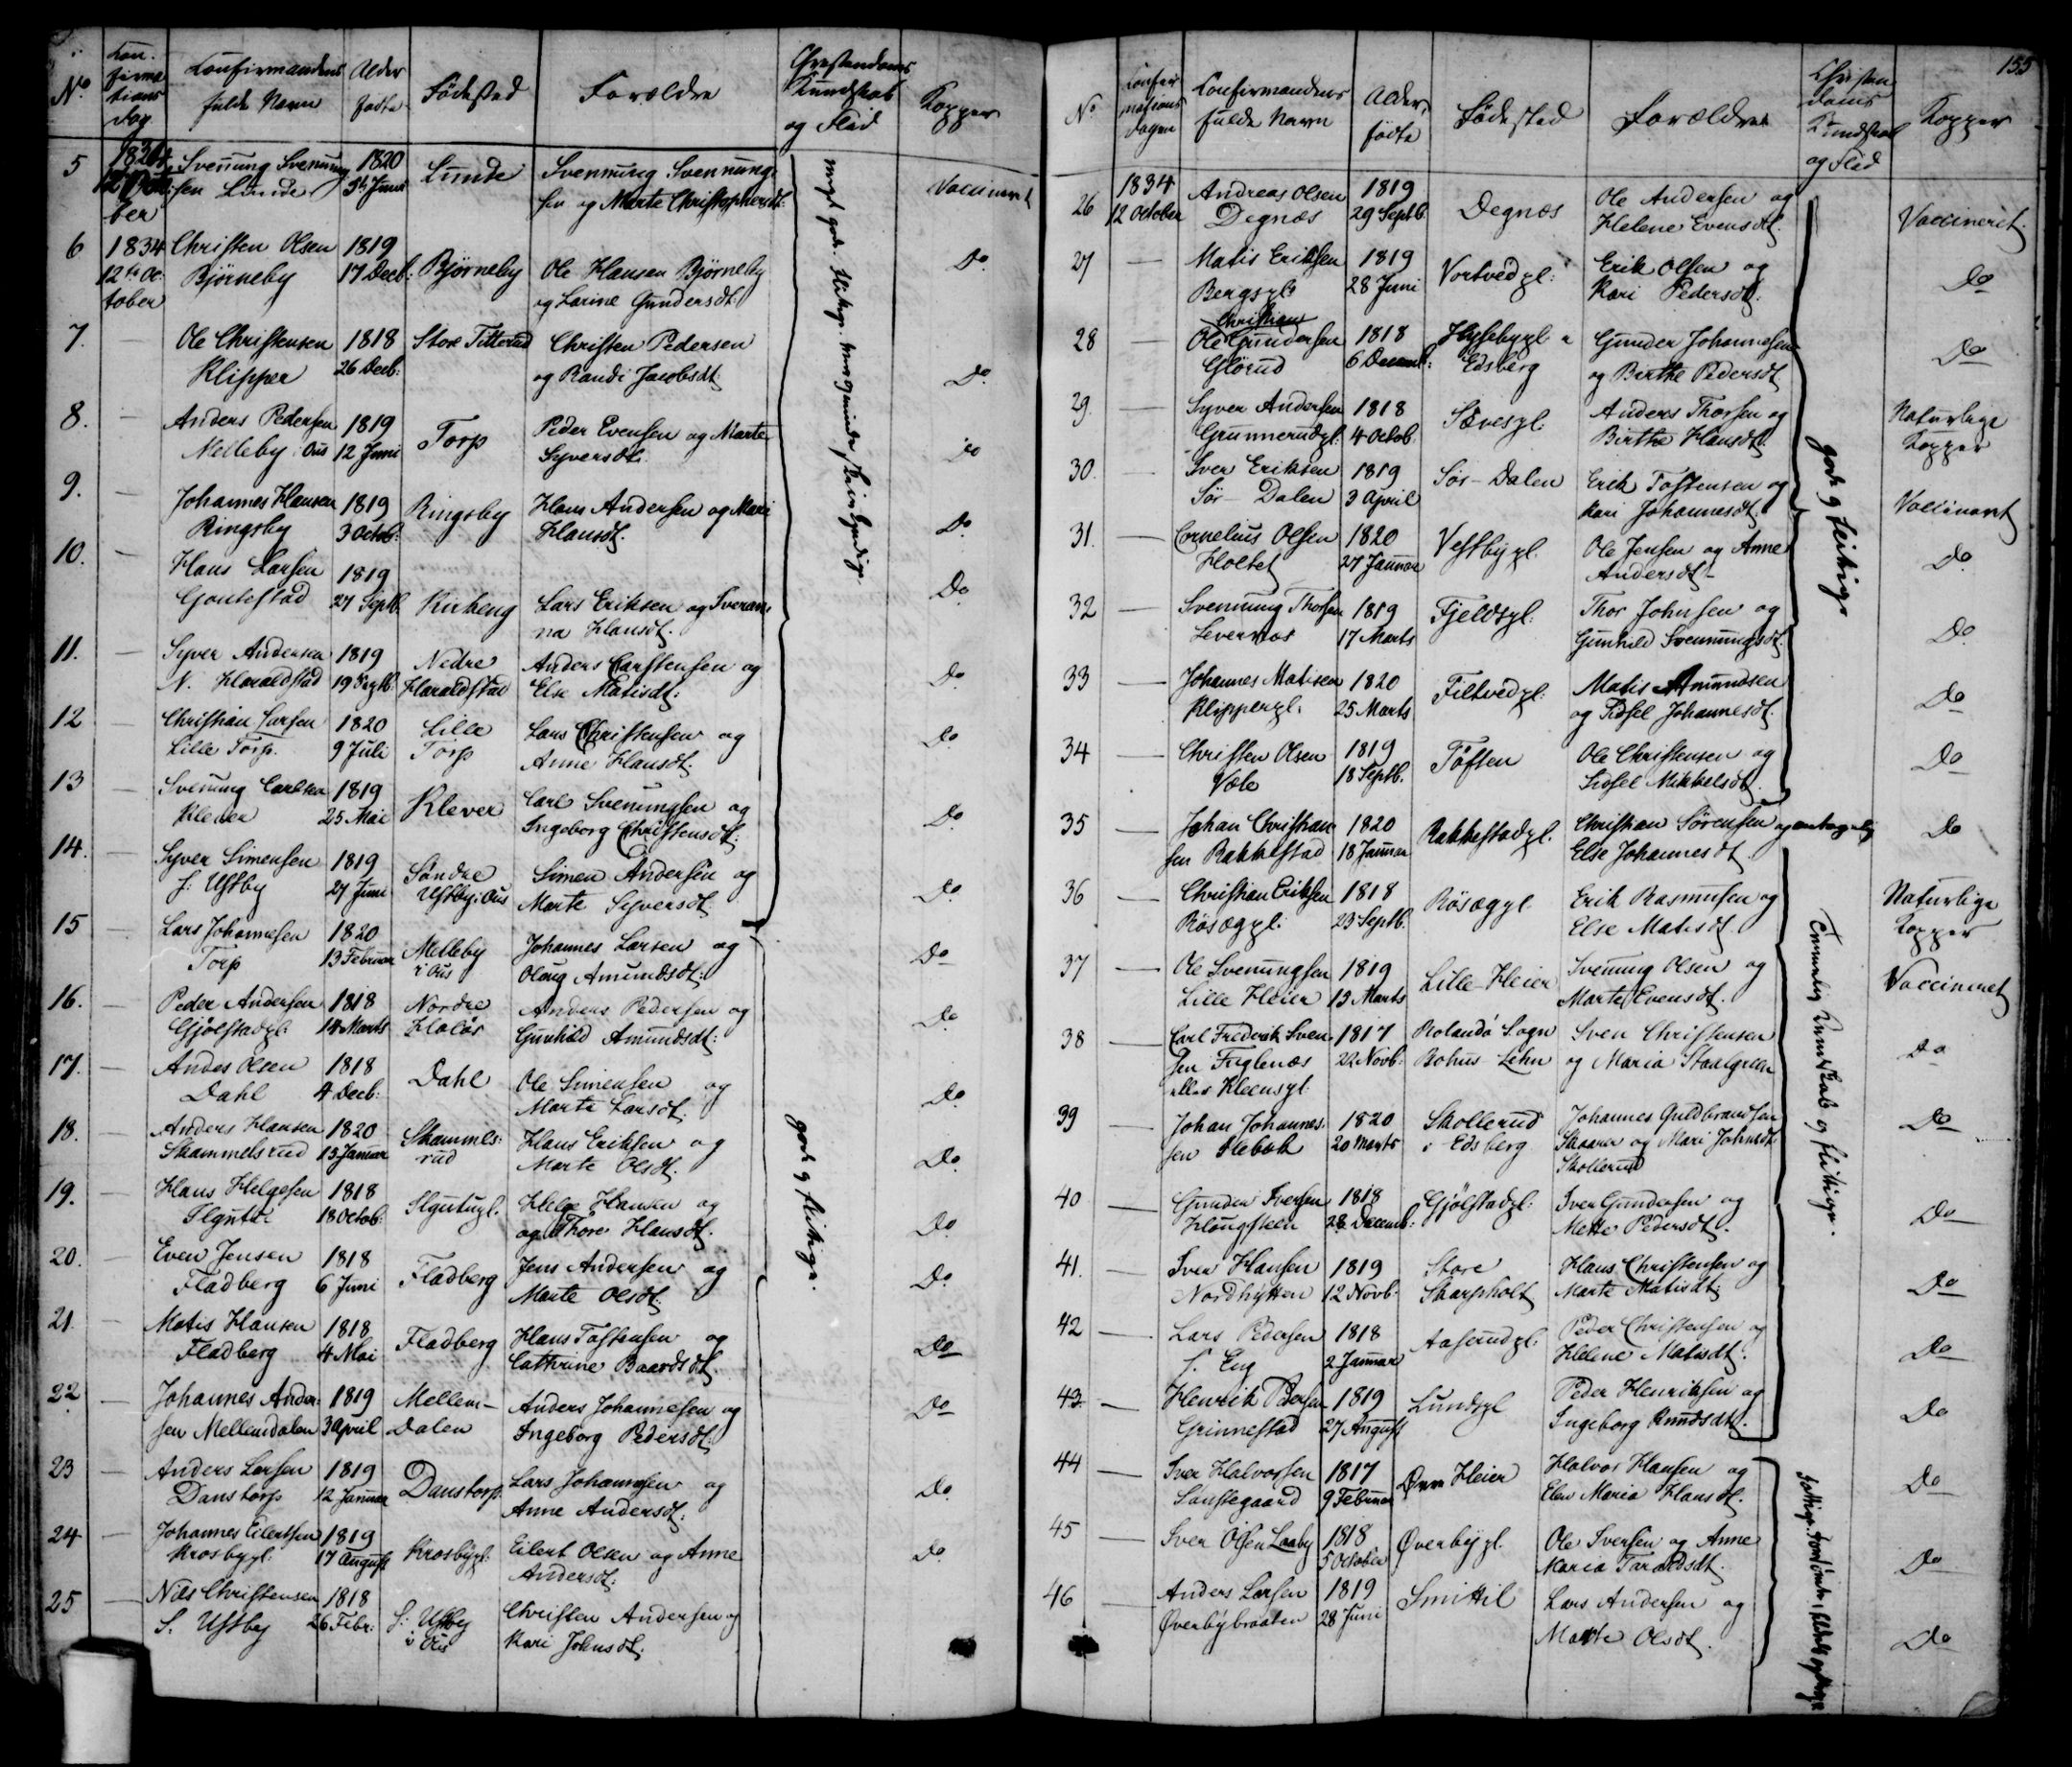 No.
Con-
firma
tions
dag
Confirmandens
fulde Navn
Alder
fødte
Fødested
Forældre
Christendoms
Kundskab
og Flid
Kopper
5 1834 Svenung Svenung 1820 Lunde Svennung Svennung-
sen Lunde 5te Juni sen og Marte Christophersdt: Vaccineret
ber
6 1834 Christen Olsen 1819
12te Oc- Bjørneby 17 Decb: Bjørneby Ole Hansen Bjørneby Do
tober og Larine Gundersdt:
7. — Ole Christensen 1818 Store Titterud Christen Pedersen
Klipper 26 Decb: og Randi Jacobsdt Do
8. — Anders Pedersen 1819 Torp Peder Evensen og Marte
Melleby Ous 12 Juni Syversdt: Do
9. — Johannes Hansen 1819 Ringsby Hans Andersen og Mari
Ringsby 3 Octob: Hansdt. Do
10. — Hans Larsen 1819
Gautestad 27 Septb. Kirkeng Lars Eriksen og Sveran- Do
na Hansdt.
11. — Syver Andersen 1819 Nedre Anders Carstensen og
N. Haraldstad 19 Septb. Haraldstad Else Matisdt: Do
12 — Christian Larsen 1820 Lille Lars Christensen og
Lille Torp. 9 Juli Torp Anne Hansdt. Do
13 — Svenung Carlsen 1819 Klever Carl Svenungsen og
Klever 25 Mai Ingeborg Christensdt. Do
14. — Syver Simensen 1819 Søndre Simen Andersen og
S: Ustby 27 Juni Ustby: Ous Marte Syversdt Do
15 — Lars Johannesen 1820 Melleby Johannes Larsen og
Torp 13 Februar i Ous Olaug Amundsdt: Do
16. — Peder Andersen 1818 Nordre Anders Pedersen og
Gjølstadpl: 14 Marts Haløs Gunhild Amundsdt: Do
17. — Andes Olsen 1818 Dahl Ole Simensen og
Dahl 4 Decb: Marte Larsdt. Do
18. — Anders Hansen 1820 Skammels- Hans Eriksen og
Skammelsrud 15 Januar rud Marte Olsdt. Do
19. — Hans Helgesen 1818 Helge Hansen og
18 Octob: og Thore Hansdt. Do
20. — Even Jensen 1818 Fladberg Jens Andersen og
Fladberg 6 Juni Marte Olsdt. Do
21 — Matis Hansen 1818 Fladberg Hans Tostensen og
Fladberg 4 Mai Cathrine Baardsdt. Do
22 — Johannes Ander- 1819 Mellem- Anders Johannesen og
sen Mellemdalen 3 April Dalen Ingeborg Pedersdt. Do
23 — Anders Larsen 1819 Danstorp Lars Johannesen og
Danstorp 12 Januar Anne Andersdt. Do
24 — Johannes Eilertsen 1819 Krosbypl: Eilert Olsen og Anne
Krosbypl. 17 August Andersdt: Do
25 — Nils Christensen 1818 S: Ustby Christen Andersen og
S. Ustby 26 Febr: i Ous Kari Johnsdt.
meget gode
gode og flittige.
155
No
Confir
mations
dagen
Confirmandens
fulde Navn
Alder,
fødte
Fødested
Forældre
Christen
doms
Kundskab
og Flid
Kopper
26 1834 Andreas Olsen 1819 Degnæs Ole Andersen og Vaccineret.
12 October Degnæs 29 Septb Helene Evensdt.
27 — Matis Eriksen 1819 Vortvedpl: Erik Olsen og
Bergspl: 28 Juni Kari Pedersdt. Do
Christian
28 — Ole Gundersen 1818 Hyssebypl i Gunder Johannesen
Glørud 6 Decemb: Edsberg og Birthe Pedersdt Do
29. — Syver Andersen 1818 Sævespl. Anders Thorsen og Naturlige
Grunnerudpl. 4 Octob. Birthe Hansdt. Kopper
30. — Iver Eriksen 1819 Sör-Dalen Erik Tostensen og
Sör-Dalen 3 April Kari Johannesdt. Vaccineret
31. — Cornelius Olsen 1820 Vestbypl. Ole Jensen og Anne
Holtet 27 Januar Andersdt Do
32 — Svennung Thorsen 1819 Fjeldspl. Thor Johnsen og
Levernæs 17 Marts Gunhild Svennungsdt. Do
33 — Johannes Matisen 1820 Filtvedpl. Matis Amundsen
Klipperpl. 25 Marts og Sidsel Johannesdt. Do
34 — Christen Olsen 1819 Töften Ole Christensen og
Væle 18 Septb. Sidsel Mikkelsdt. Do
35 — Johan Christian- 1820 Rakkestadpl. Christian Sörensen og
sen Rakkestad 18 Januar Else Johannesdt. Do
36 — Christian Eriksen 1818 Rösægpl. Erik Rasmusen og Naturlige
Rösægpl. 23 Septb. Else Matisdt Kopper
37 — Ole Svenungsen 1819 Lille Heier Svenung Olsen og
Lille Heier 13 Marts Marte Evensdt. Vaccineret
38 — Carl Frederik Sven- 1817 Rolandö Sogn Sven Christensen
sen Fuglenæs 22 Novb: Bohus-Lehn og Maria Staalgreen Do
eller Kleenspl
39 Johan Johannes- 1820 Skollerud Johannes Guldbrandsen
sen Slebæk 20 Marts i Edsberg Skaarer og Mari Johnsdt Do
Skollerud
40 — Gunder Iversen 1818 Gjølstadpl: Iver Gundersen og
Haugsteen 28 Decemb: Mette Pedersdt. Do
41. — Iver Hansen 1819 Store Hans Christensen og
Nordhytten 12 Novb. Skarpholt Marte Matisdt. Do
42 — Lars Pedersen 1818 Aaserudpl. Peder Christensen og
S. Eng 2 Januar Helene Matisdt. Do
43. — Henrik Pedersen 1819 Lundspl Peder Henriksen og
Grinnestad 27 August Ingeborg Knudsdt. Do
44 — Iver Halvorsen 1817 Øvre Heier Halvor Hansen og
9 Februar Elen Maria Hansdt. Do
45 — Iver Olsen Laaby 1818 Øverbypl. Ole Iversen og Anne
5 October Maria Taraldsdt. Do
46 — Anders Larsen 1819 Smittil Lars Andersen og
Øverbybraaten 28 Juni Marte Olsdt. Do
gode og flittige
Temmelig Kundskab og flittige.